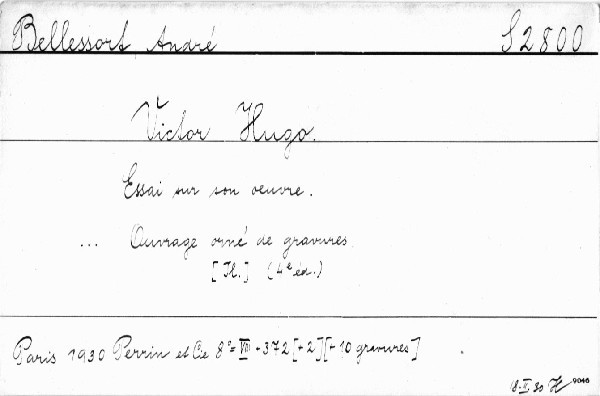 Bellessort André S 2800
Victor Hugo.
Essai sur son oeuvre.
... Ouvrage orné de gravures.
[Il.] (4e éd.)
Paris 1930 Perrin et Cie 8°= VIII + 372 [+2] [+ 10 gravures]
8-II 30 H 9046